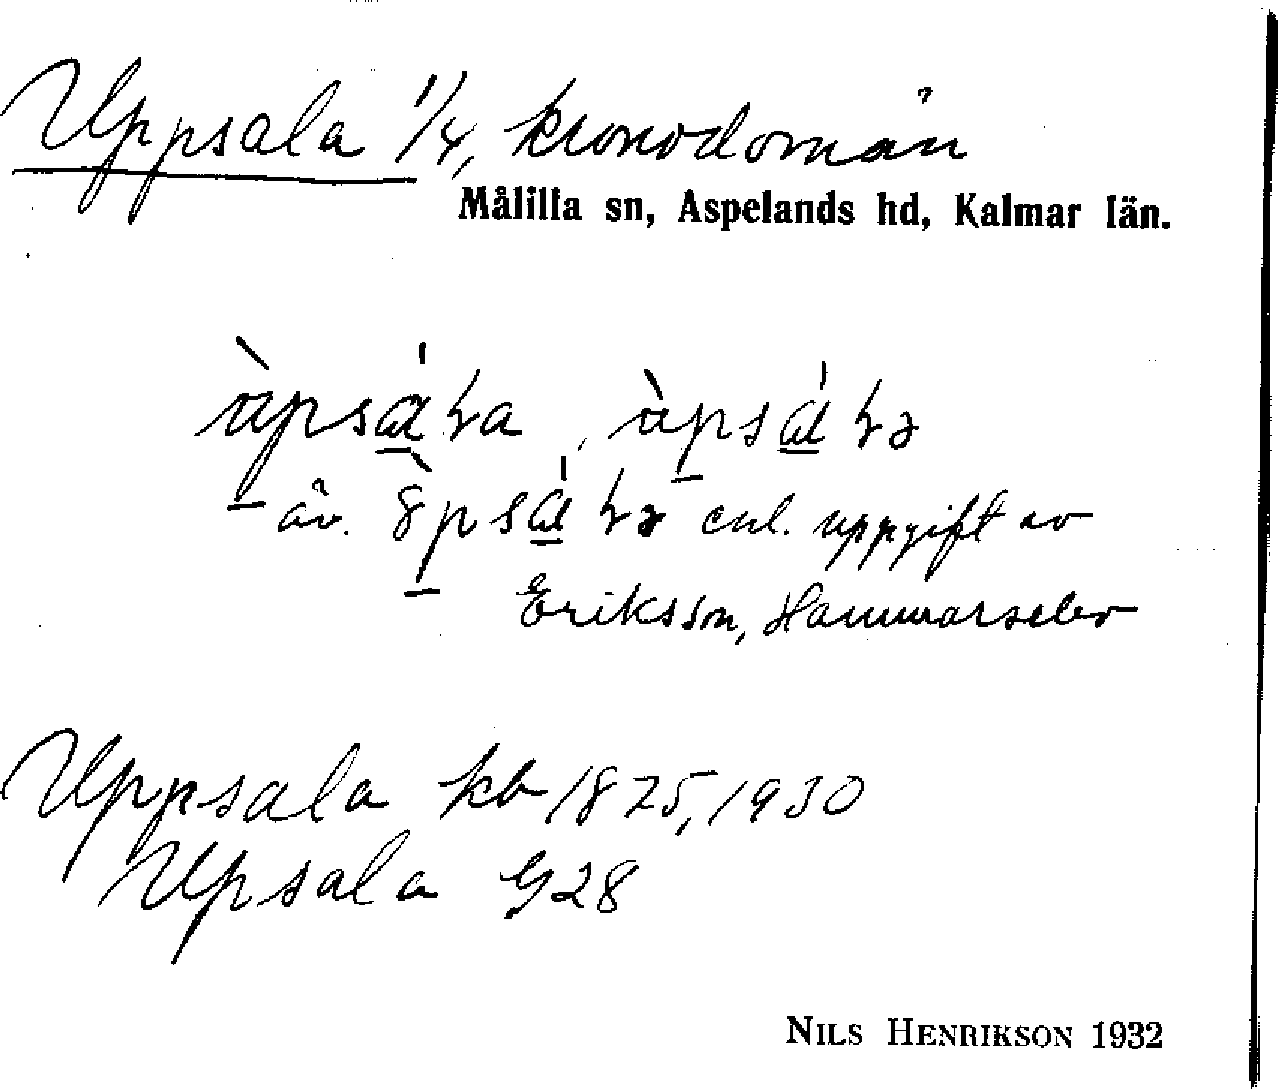 Uppsala 1/4, kronodomän
Målilla sn, Aspelands hd, Kalmar län.
äv. enl. uppgift av
Eriksson, Hammarsebo
Uppsala kb 1875, 1930
Upsala G28
NILS HENRIKSON 1932